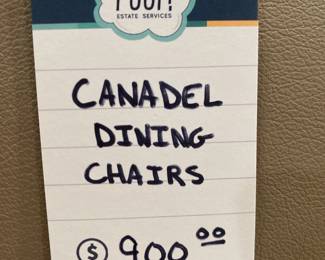 POOF!
ESTATE SERVICES
CANADEL
DINING
CHAIRS
$ 900.00